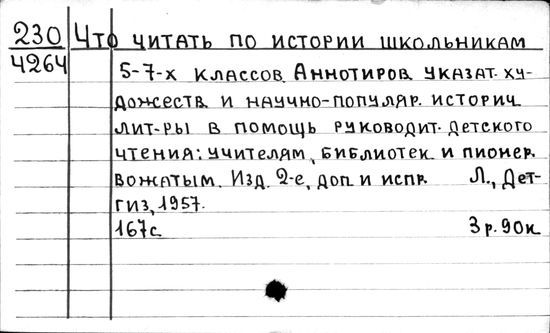 230 Что читать по истории школьникам
4264 5-7-х классов. Аннотиров. указат. ху-
дожеств. и научно-популяр. историч.
лит-ры в помощь руководит. детского
чтения: учителям, библиотек. и пионер.
вожатым. Изд. 2-е, доп. и испр. Л., Дет-
гиз, 1957.
167с. 3 р. 90к